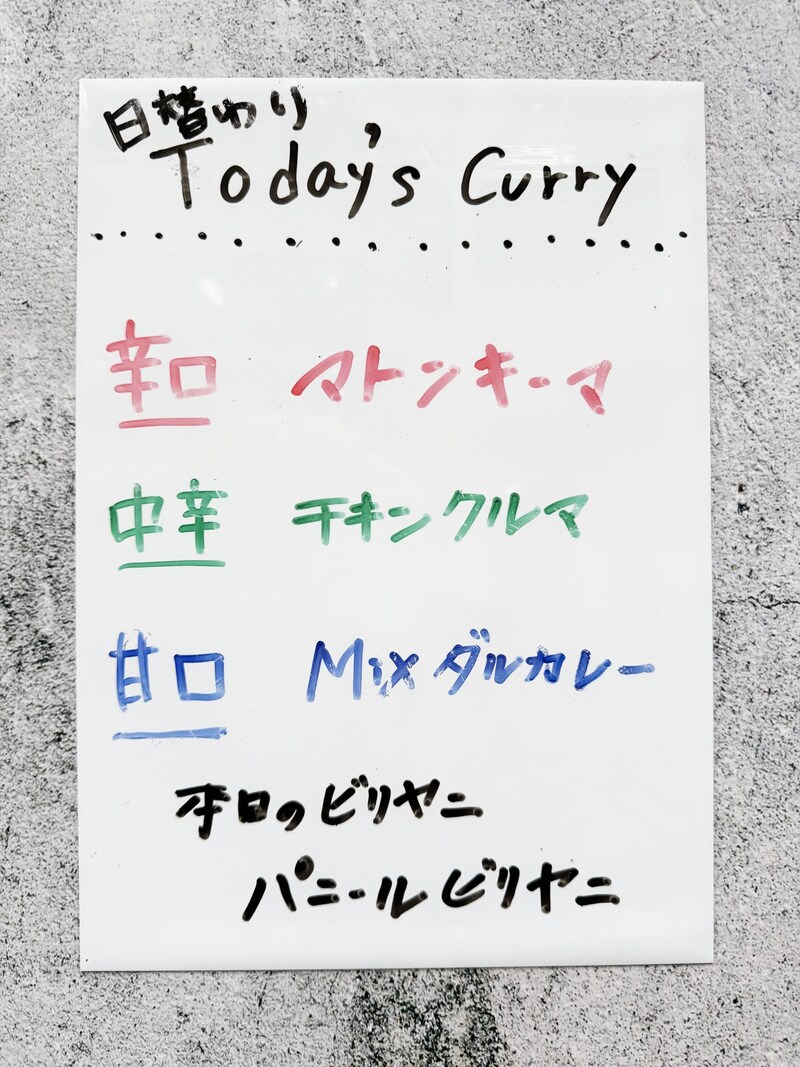 日替わり
Today's Curry
辛口 マトンキーマ
中辛 チキンクルマ
甘口 Mixダルカレー
本日のビリヤニ
パニールビリヤニ